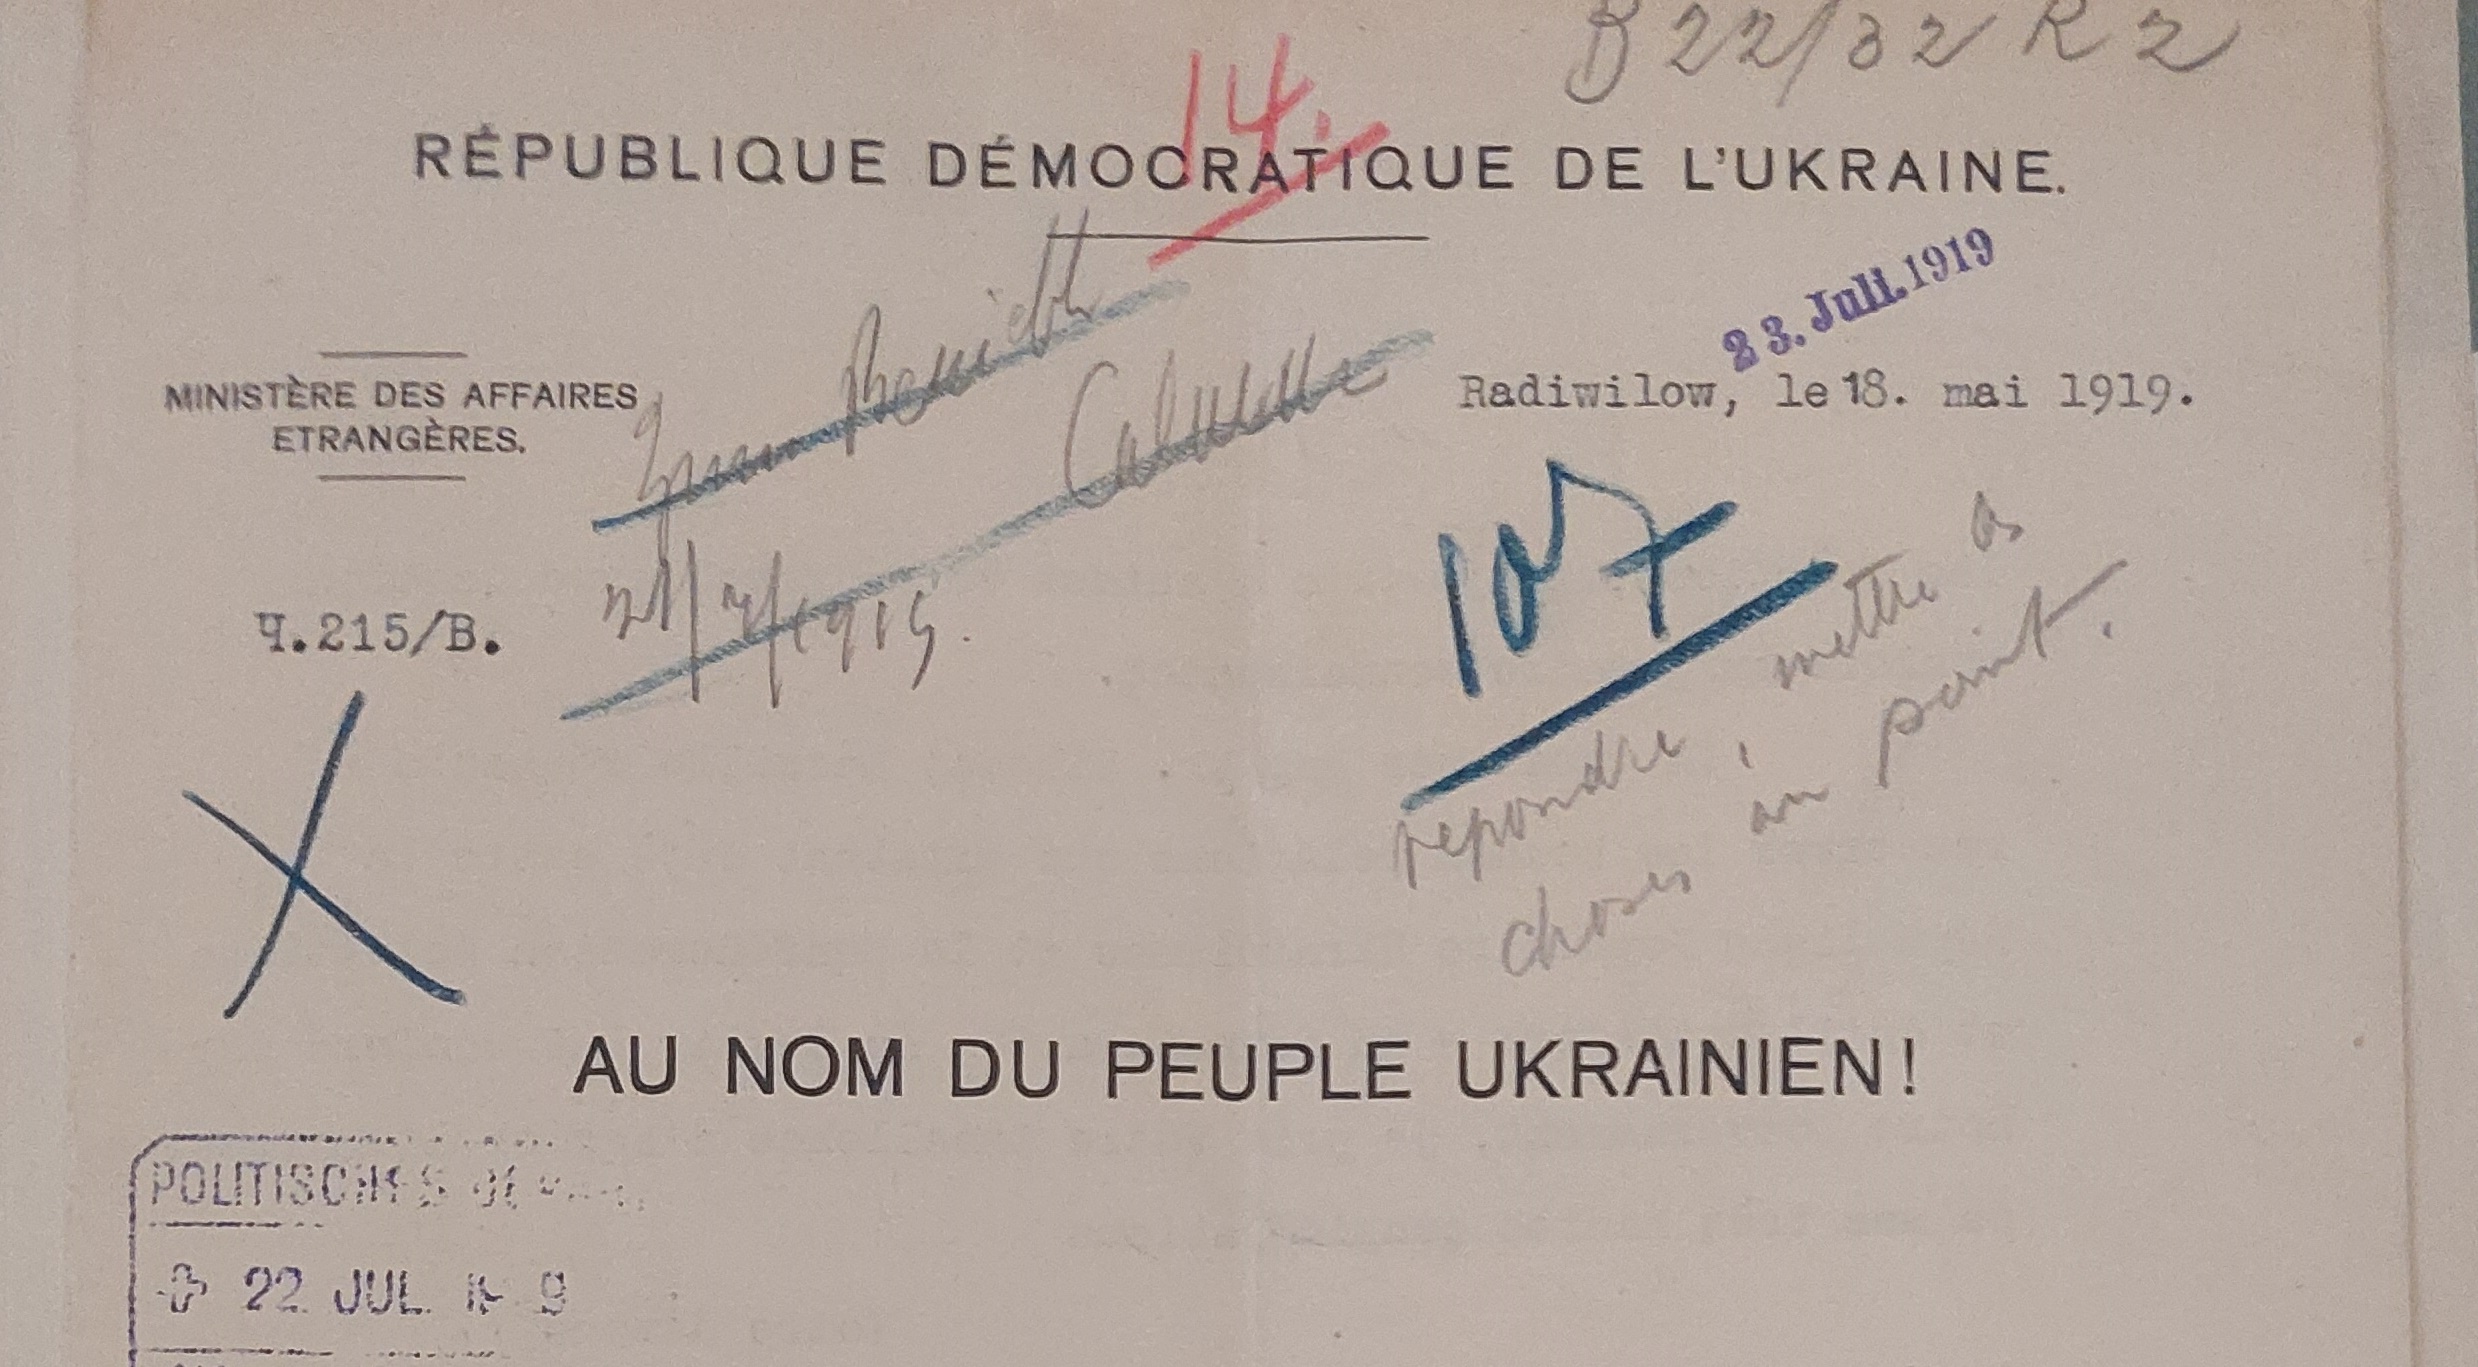 B 22/32 R 2
14.
RÉPUBLIQUE DÉMOCRATIQUE DE L'UKRAINE.
23. Juli. 1919
MINISTÈRE DES AFFAIRES
ETRANGÈRES.
Radiwilow, le 18. mai 1919.
107
Ч.215/B.
repondre, mettre
choses au point.
AU NOM DU PEUPLE UKRAINIEN!
POLITISCHES
22. JUL. 1919